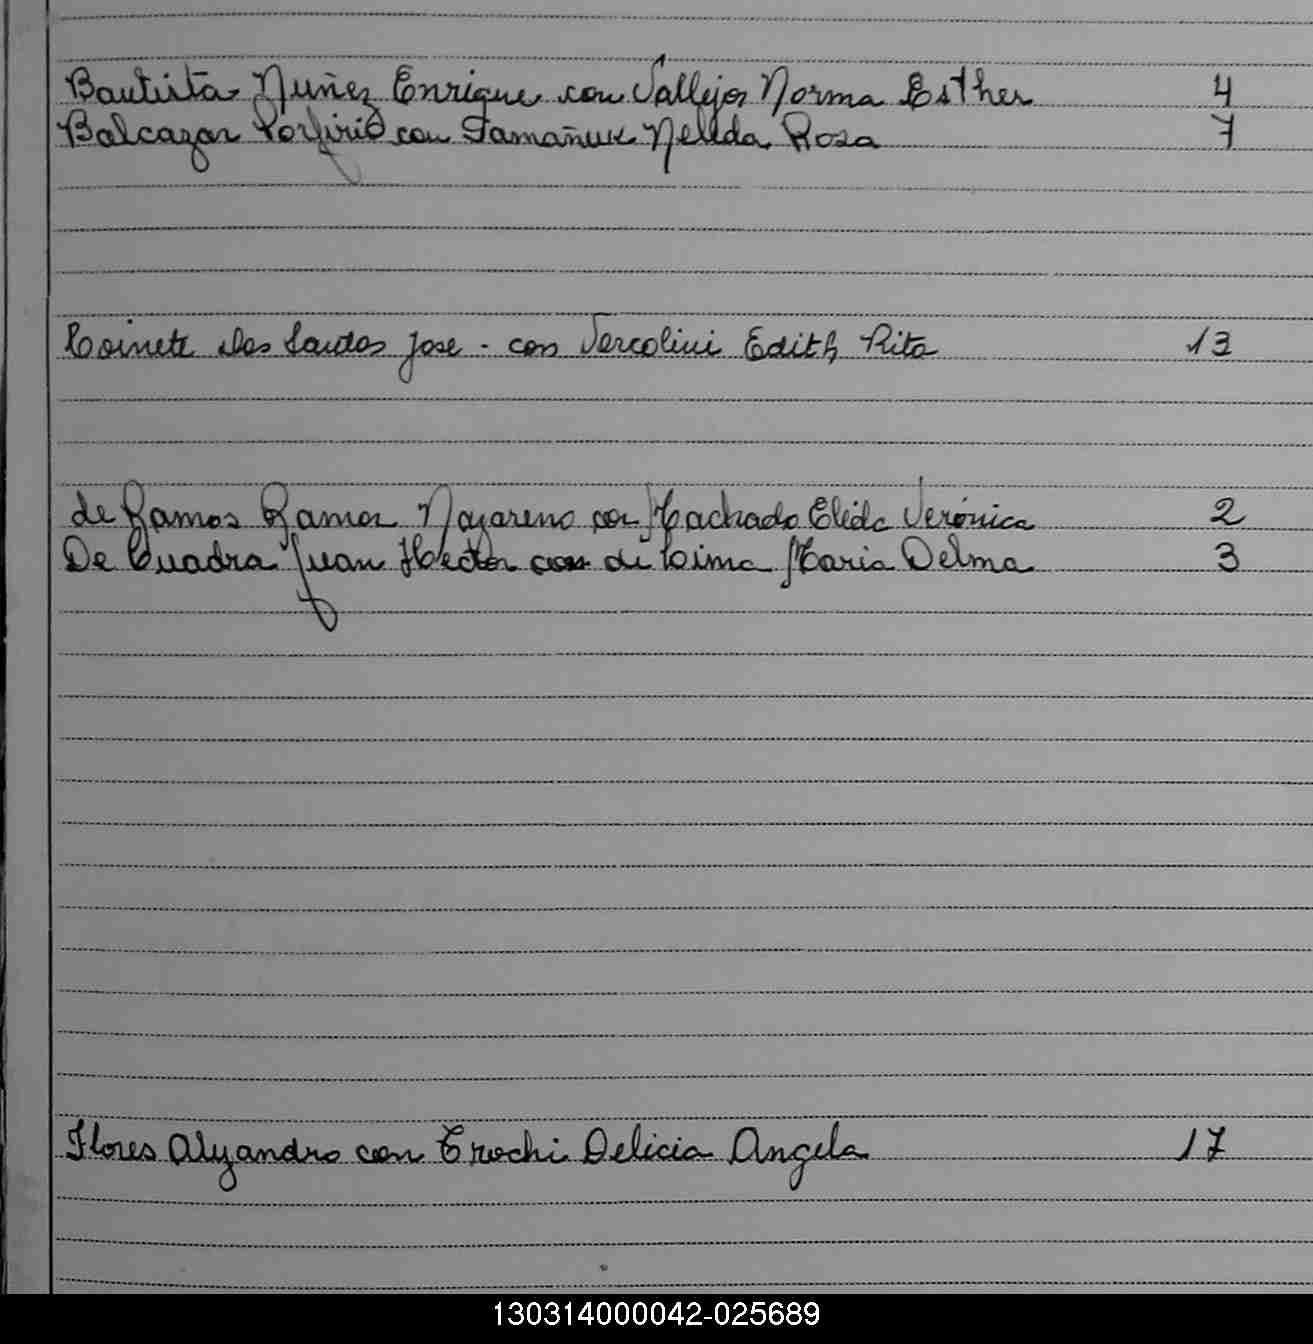 Bautista Nuñez Enrique con Vallejos Norma Esther 4
Balcazar Porfirio con Nelida Rosa 7
Dos Santos Jose - con Vercolini Edith Rita 13
de Ramos Ramon Nazareno con Machado Elida Verónica 2
De Cuadra Juan Hector con di Cima Maria Delma 3
Flores Alejandro con Delicia Angela 17
130314000042-025689